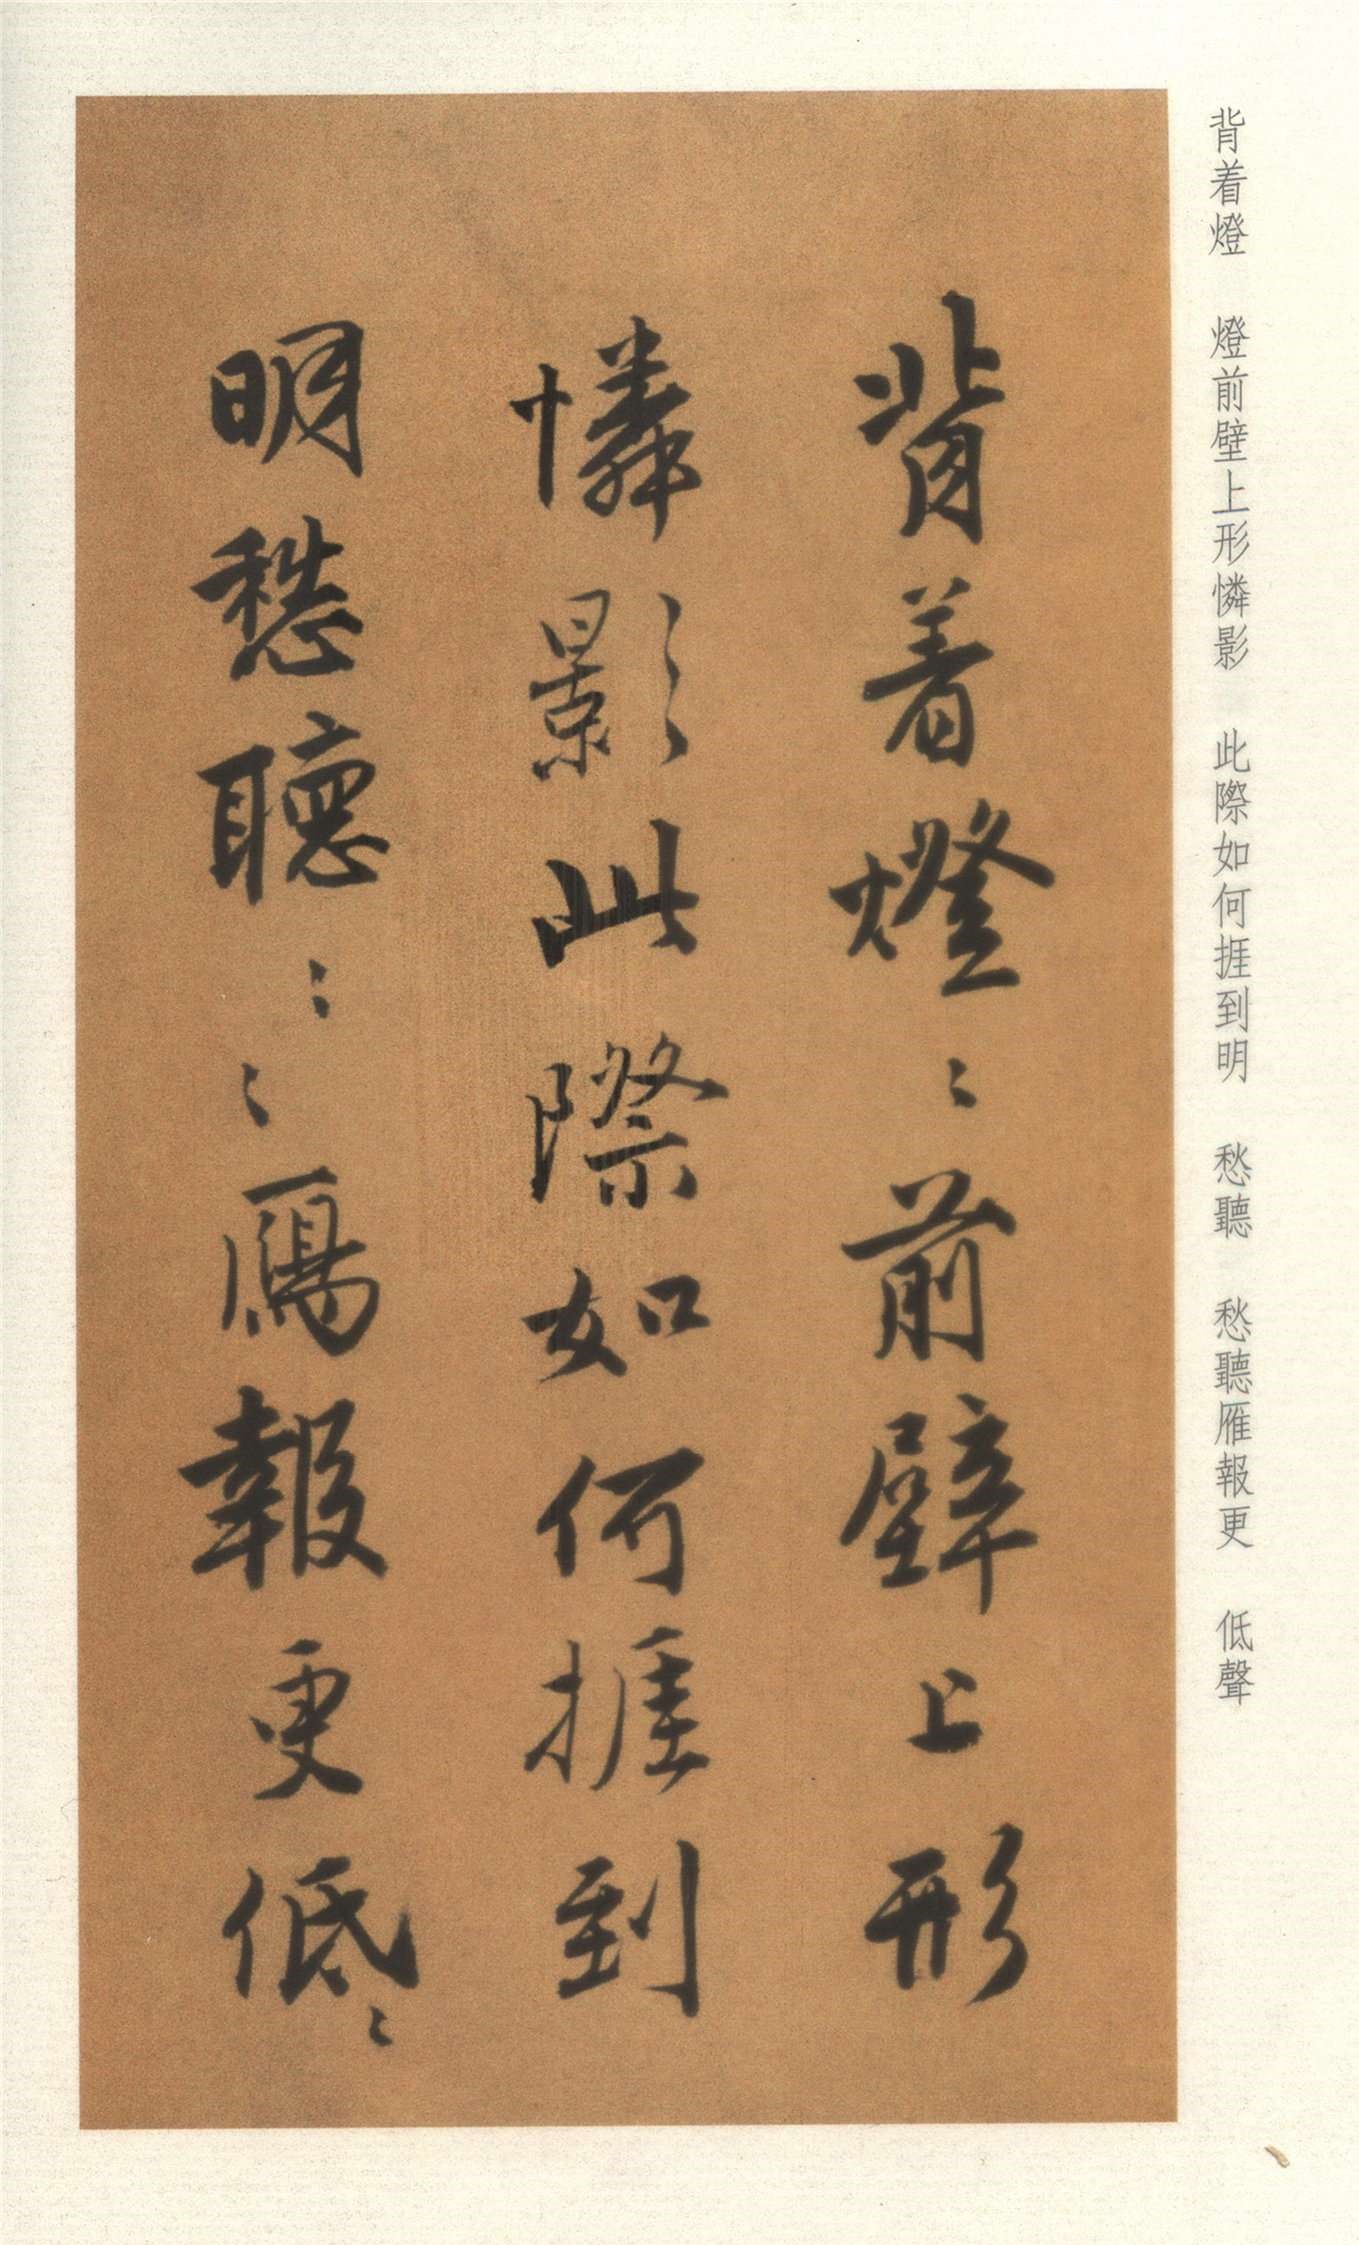 背着燈　燈前壁上形憐影　此際如何捱到明　愁聽　愁聽雁報更　低聲
背着燈〻前壁上形
憐影此際如何捱到
明愁聽〻〻鴈報更低〻